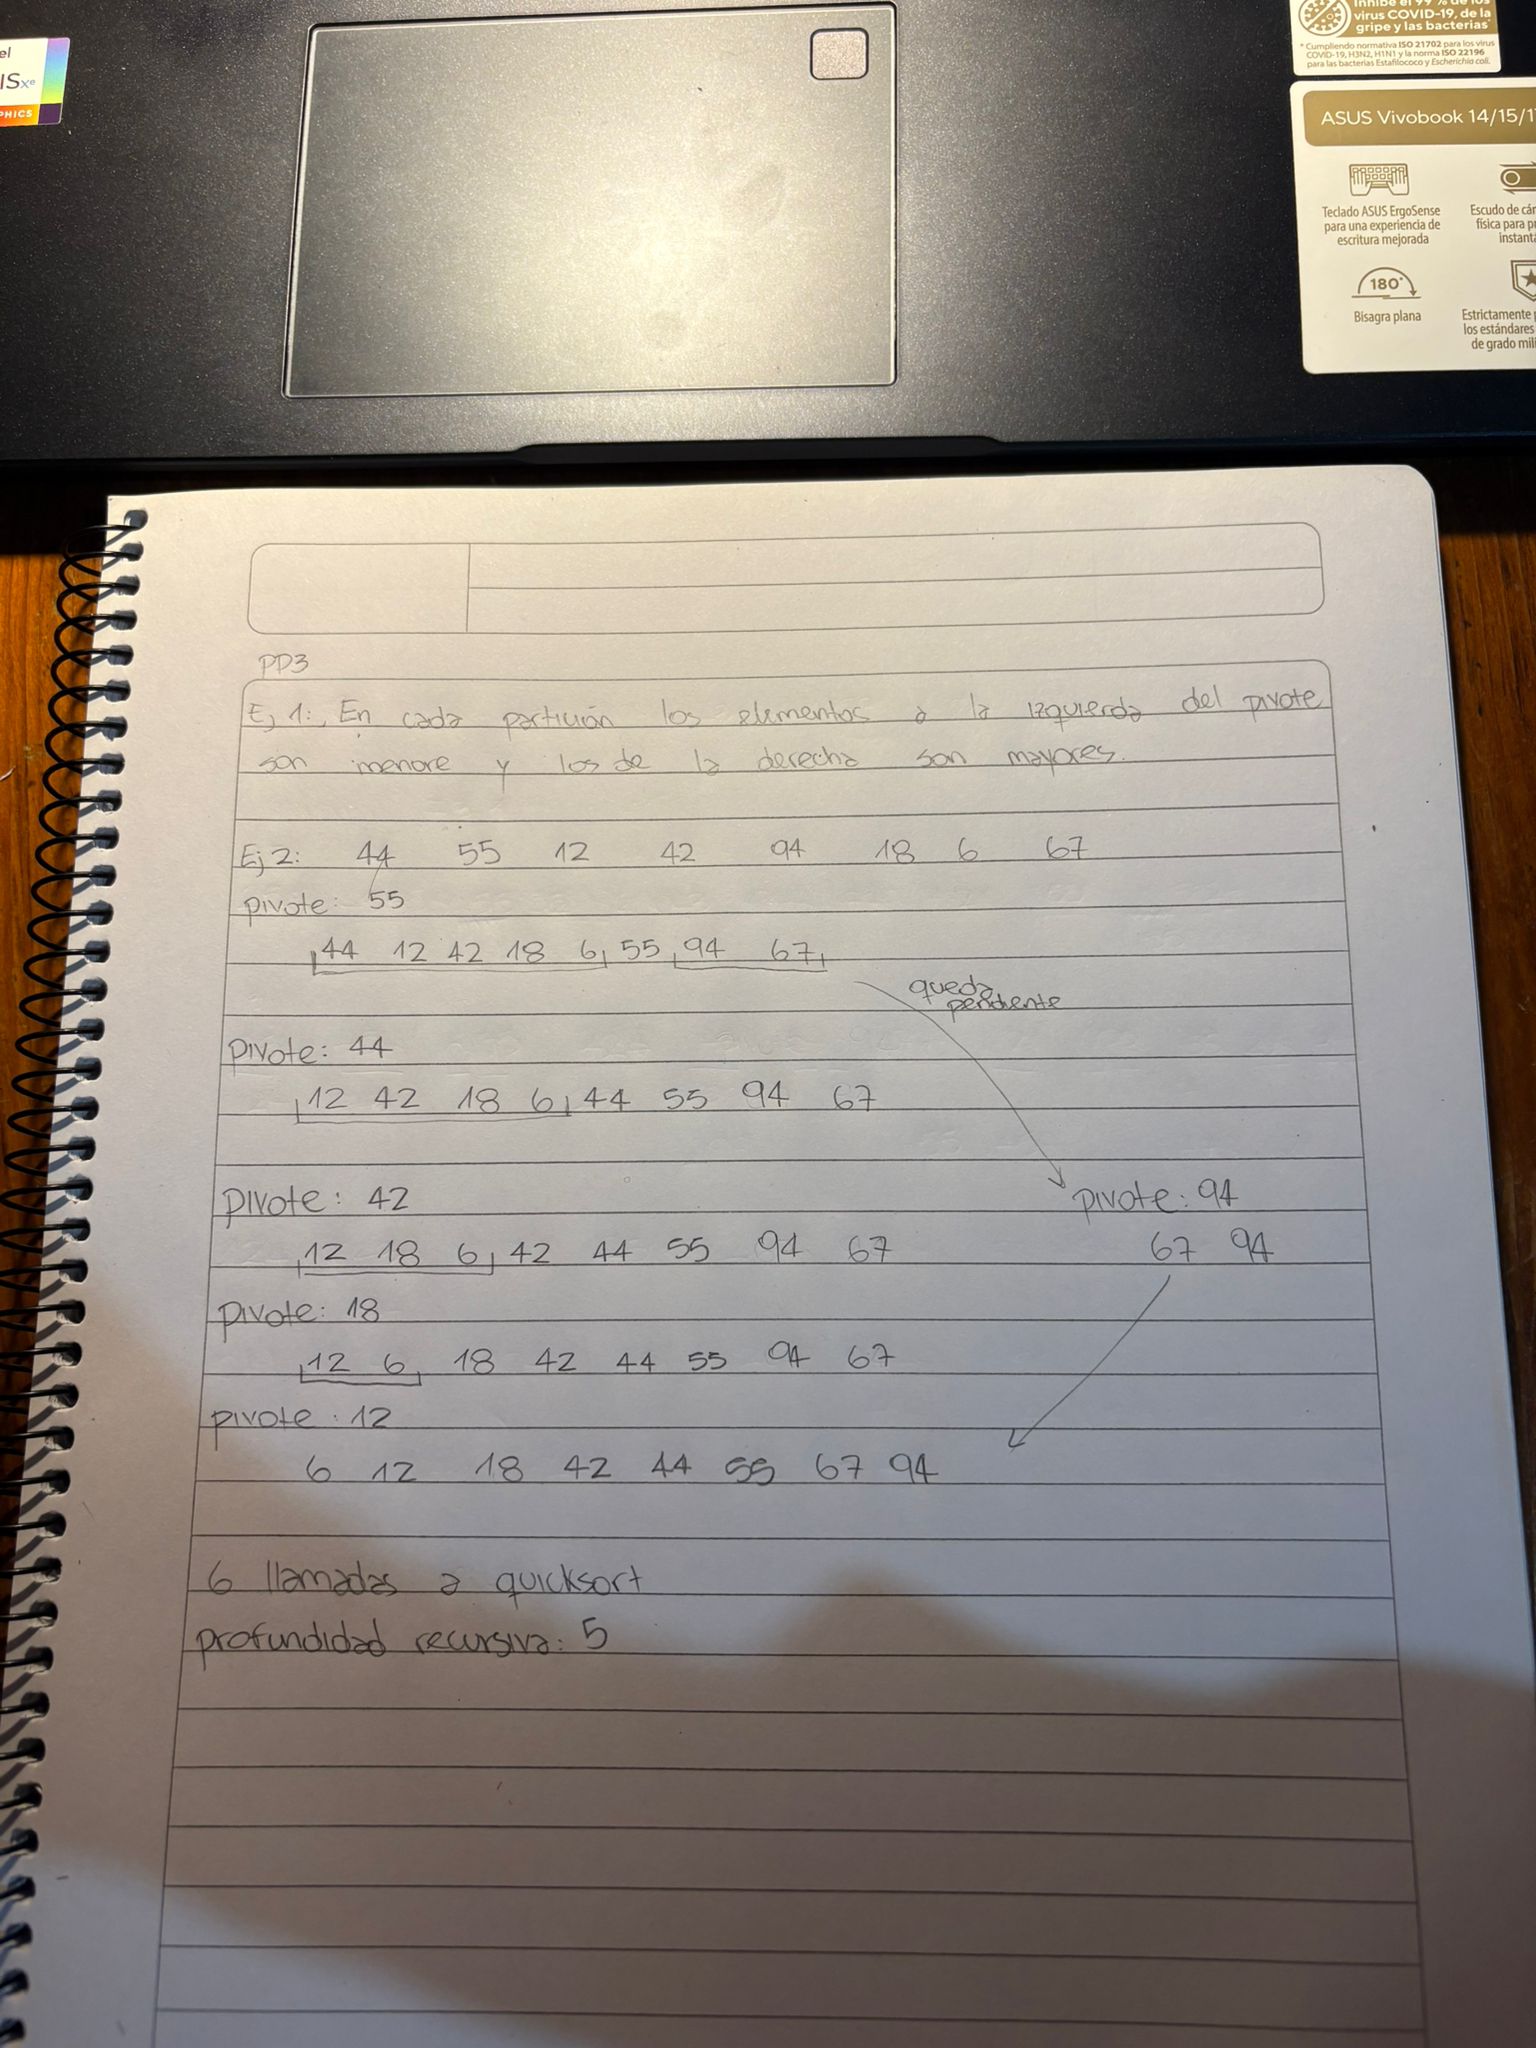 el
ISxe
PHICS
Inhibe el 99 % de los
virus COVID-19, de la
gripe y las bacterias*
* Cumpliendo normativa ISO 21702 para los virus
COVID-19, H3N2, H1N1 y la norma ISO 22196
para las bacterias Estafilococo y Escherichia coli.
ASUS Vivobook 14/15/1
Teclado ASUS ErgoSense
para una experiencia de
escritura mejorada
Escudo de cá
física para p
instant
180°
Bisagra plana
Estrictamente
los estándares
de grado mil
PD3
Ej 1: En cada partición los elementos a la izquierda del pivote
son menore y los de la derecha son mayores.
Ej 2: 44 55 12 42 94 18 6 67
pivote: 55
44 12 42 18 6 55 94 67
queda
pendiente
pivote: 44
12 42 18 6 44 55 94 67
pivote: 42 pivote: 94
12 18 6 42 44 55 94 67 67 94
pivote: 18
12 6 18 42 44 55 94 67
pivote: 12
6 12 18 42 44 55 67 94
6 llamadas a quicksort
profundidad recursiva: 5